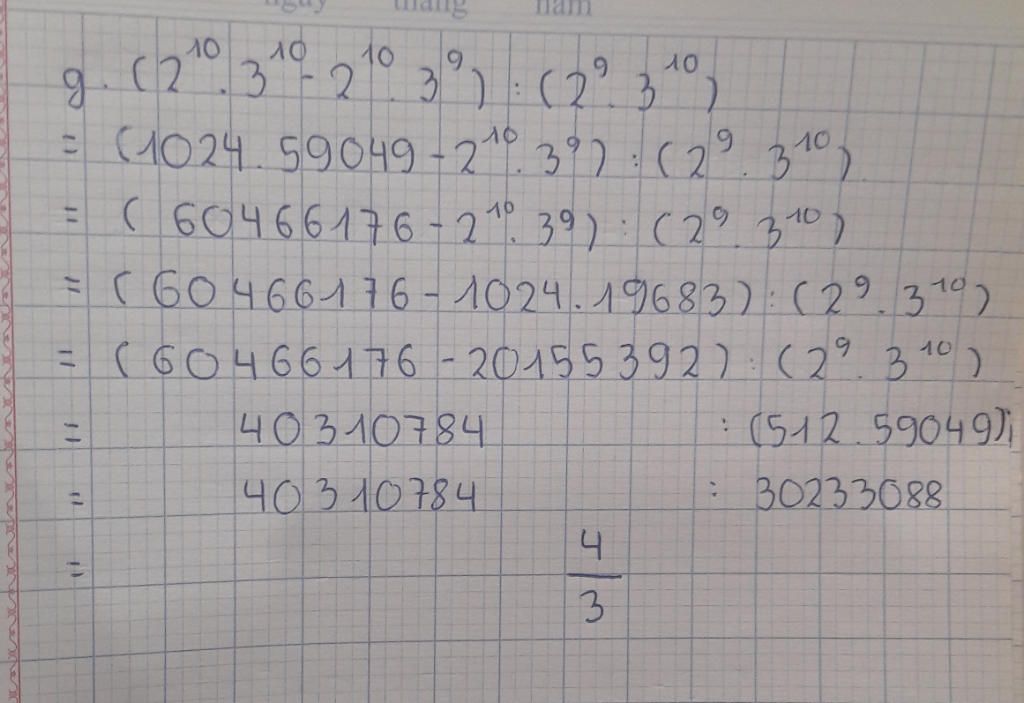 ngày tháng năm
g. (2¹⁰. 3¹⁰ - 2¹⁰. 3⁹) : (2⁹. 3¹⁰)
= (1024. 59049 - 2¹⁰. 3⁹) : (2⁹. 3¹⁰)
= (60466176 - 2¹⁰. 3⁹) : (2⁹. 3¹⁰)
= (60466176 - 1024. 19683) : (2⁹. 3¹⁰)
= (60466176 - 20155392) : (2⁹. 3¹⁰)
= 40310784 : (512. 59049)
= 40310784 : 30233088
= 4/3